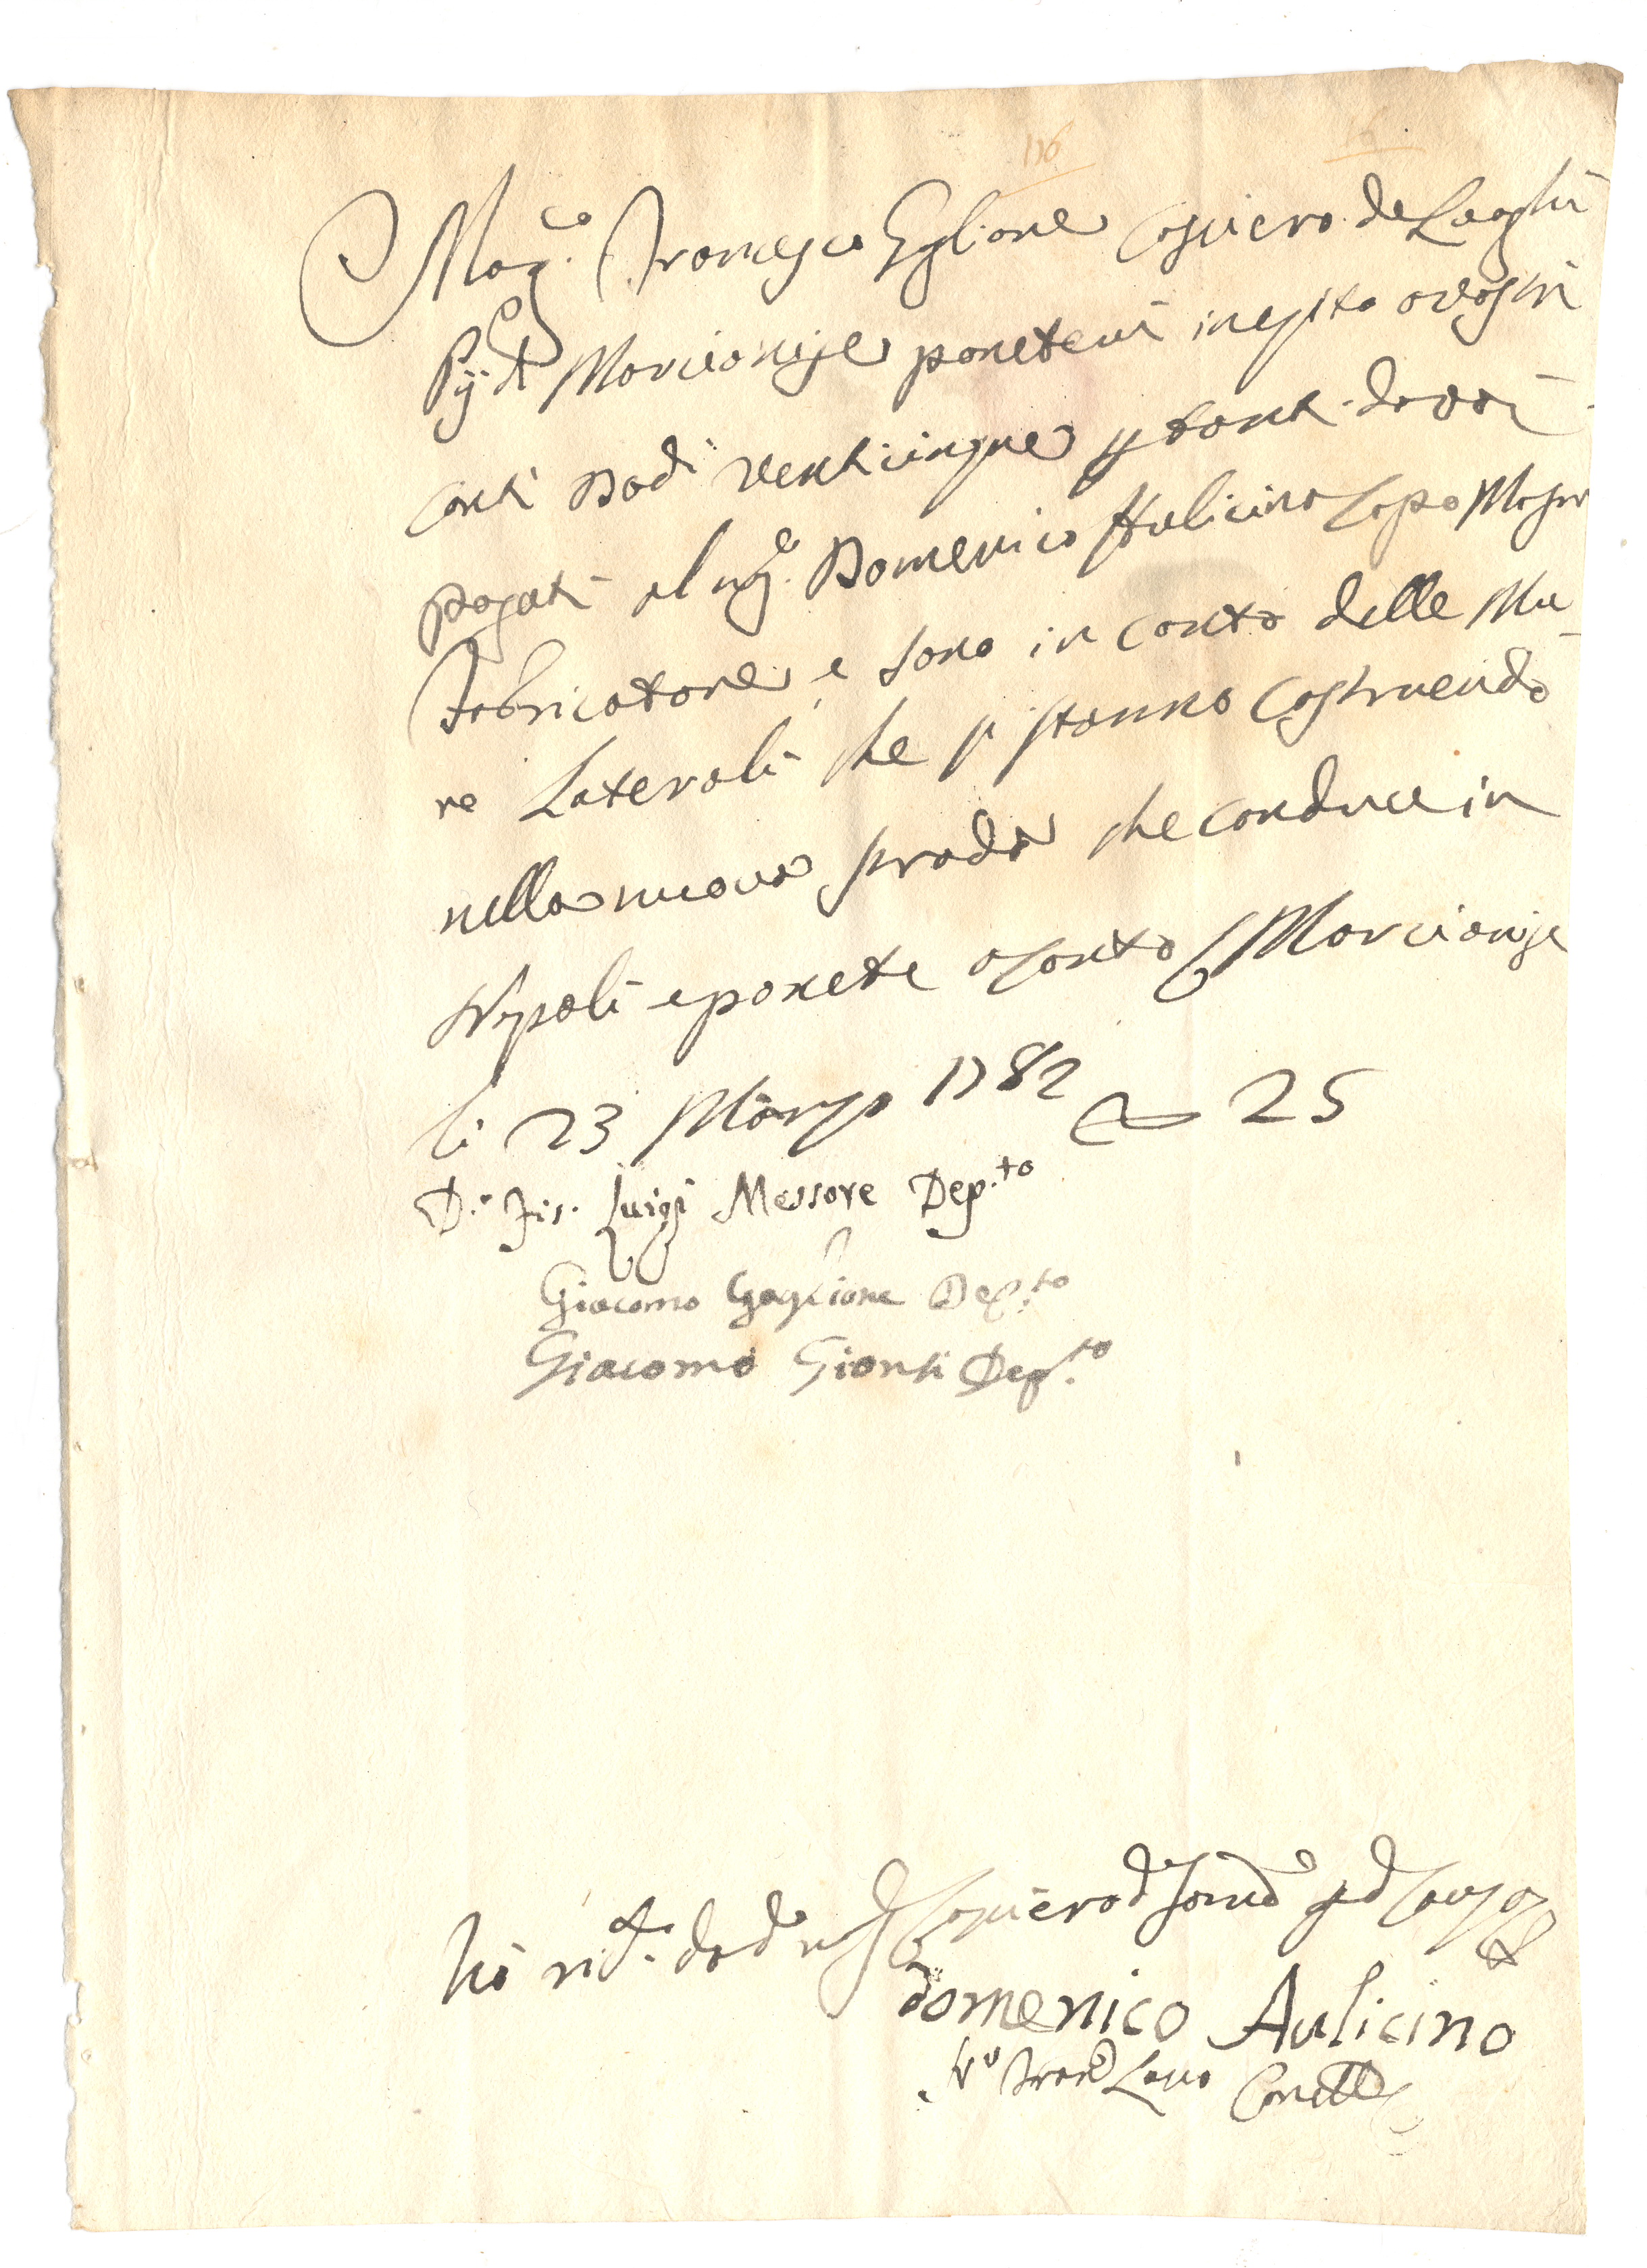 116
16
Mag.co Francesco Gglione Cassiero de Luoghi
Pij di Marcianise ponetevi in esito a vostri
conti Docti venticinque p tanti da voi
pagati al mg.co Domenico Aulicino Capo Mastro
Fabricatore, e sono in conto delle Mu
ra Laterali che si stanno costruendo
nella nuova strada che conduce in
Napoli e ponete a conto Marcianise
li 23 Marzo 1782 25
D.r Fis. Luigi Messore Dep.to
Giacomo Gaglione Dep.to
Giacomo Gionti Dep.to
hò ric.to da d.o mg.co Cassiero d
domenico Aulicino
Fran.co Canc.